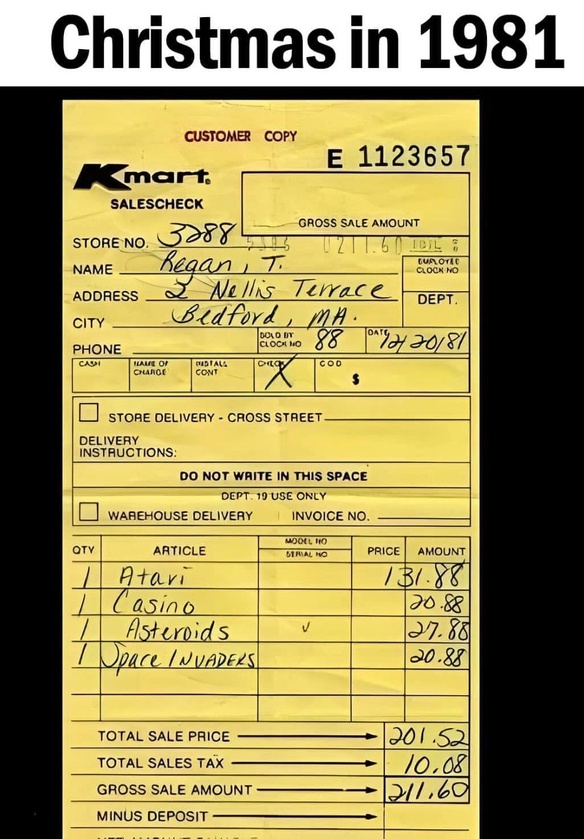 Christmas in 1981
CUSTOMER COPY
E 1123657
Kmart
SALESCHECK
GROSS SALE AMOUNT
STORE NO. 3288
0211.60
NAME Regan, T.
EMPLOYEE CLOCK NO
ADDRESS 2 Nellis Terrace
DEPT.
CITY Bedford, MA.
PHONE SOLD BY CLOCK NO 88 DATE 12/20/81
CASH NAME OF CHARGE INSTALL CONT CHECK X COD $
STORE DELIVERY - CROSS STREET
DELIVERY
INSTRUCTIONS:
DO NOT WRITE IN THIS SPACE
DEPT. 19 USE ONLY
WAREHOUSE DELIVERY INVOICE NO.
QTY ARTICLE MODEL NO SERIAL NO PRICE AMOUNT
1 Atari 131.88
1 Casino 20.88
1 Asteroids 27.88
1 Space INVADERS 20.88
TOTAL SALE PRICE 201.52
TOTAL SALES TAX 10.08
GROSS SALE AMOUNT 211.60
MINUS DEPOSIT